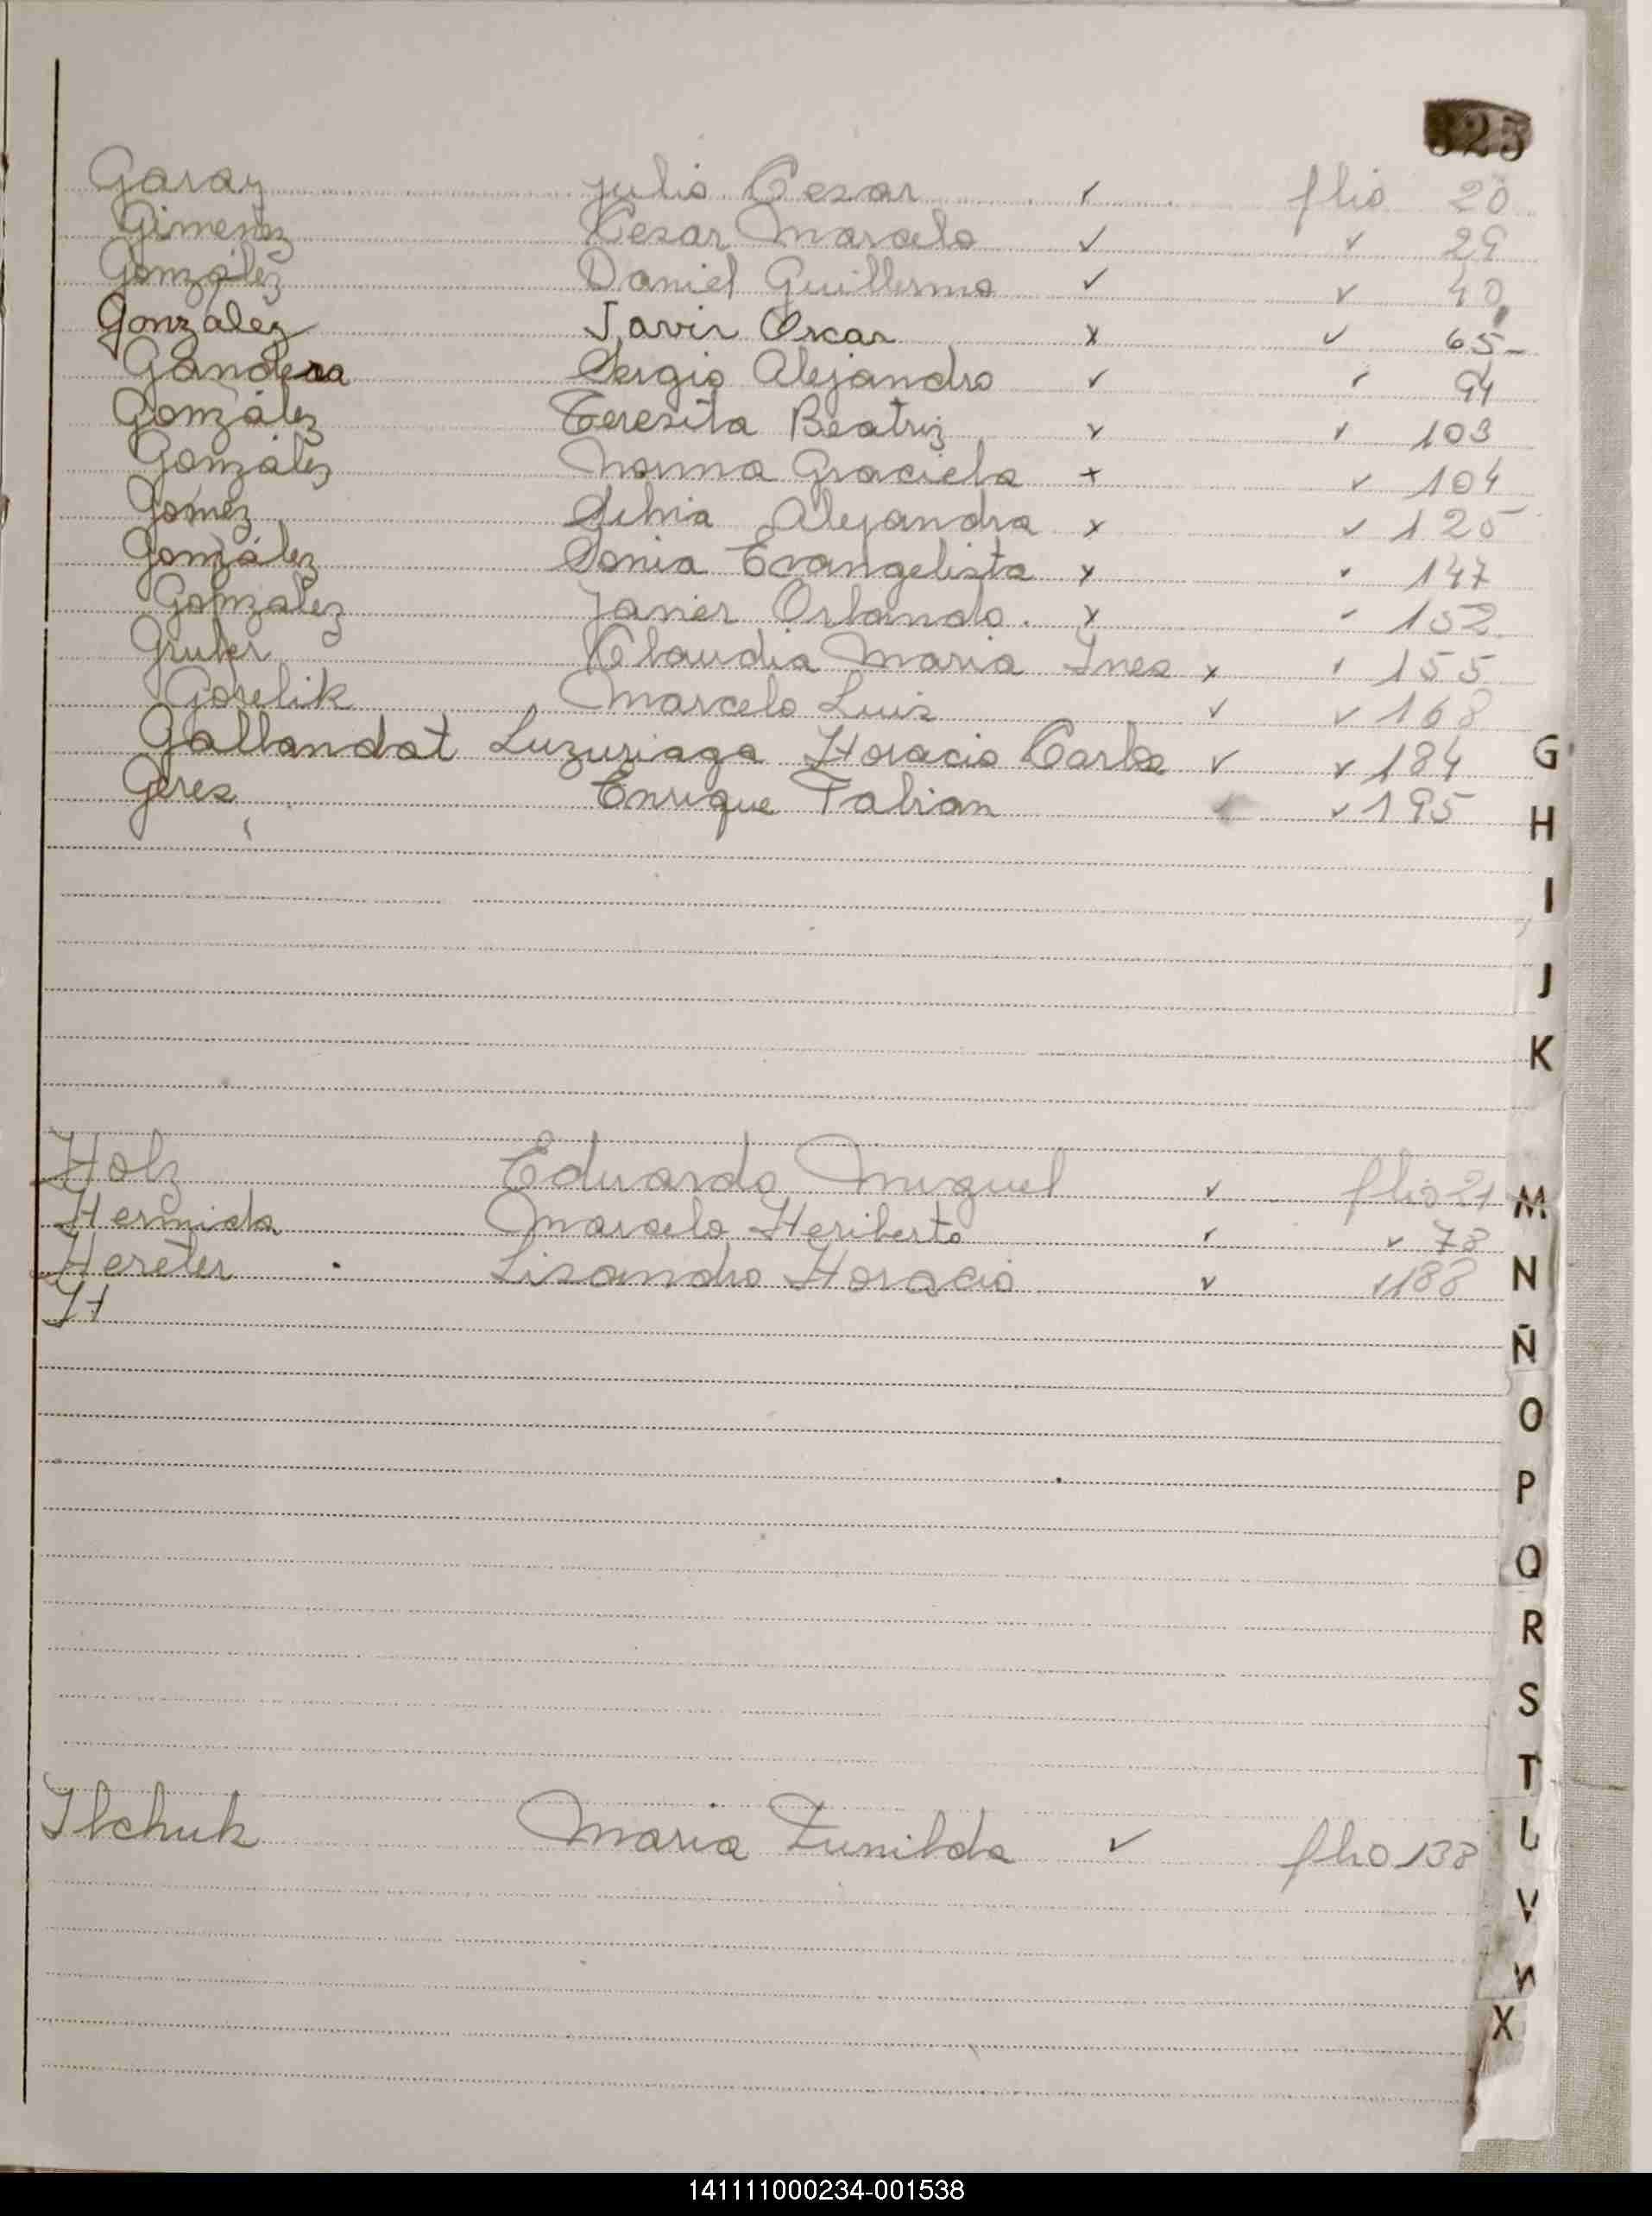 325
Garay Julio Cesar ✓ flio 20
Gimenez Cesar Marcelo ✓ ✓ 29
González Daniel Guillermo ✓ ✓ 40
González Javir Oscar x ✓ 65-
Gandera Sergio Alejandro ✓ ✓ 94
González Teresita Beatriz x ✓ 103
González Norma Graciela x ✓ 104
Gomez Silvia Alejandra x ✓ 125
González Sonia Evangelista x ✓ 147
González Javier Orlando. x ✓ 152
Gruber Claudia Maria Ines x ✓ 155
Gorelik Marcelo Luis ✓ ✓ 168
Gallandat Luzuriaga Horacio Carlos ✓ ✓ 184
Geres Enrique Fabian ✓ 195
G
H
I
J
K
Holz Eduardo Miguel ✓ flio 21
Hermida Marcelo Heriberto ✓ ✓ 78
Hereter Lisandro Horacio ✓ ✓ 188
H
M
N
Ñ
O
P
Q
R
S
T
Ilchuk Maria Zunilda ✓ flio 138
U
V
W
X
141111000234-001538